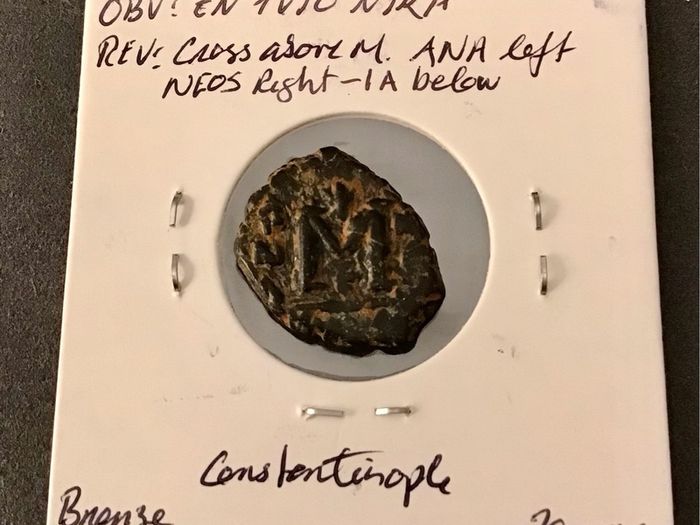 OBV: EN TVTO NIKA
REV: Cross above M. ANA left
NEOS Right - IA below
ANA
M
Constantinople
Bronze